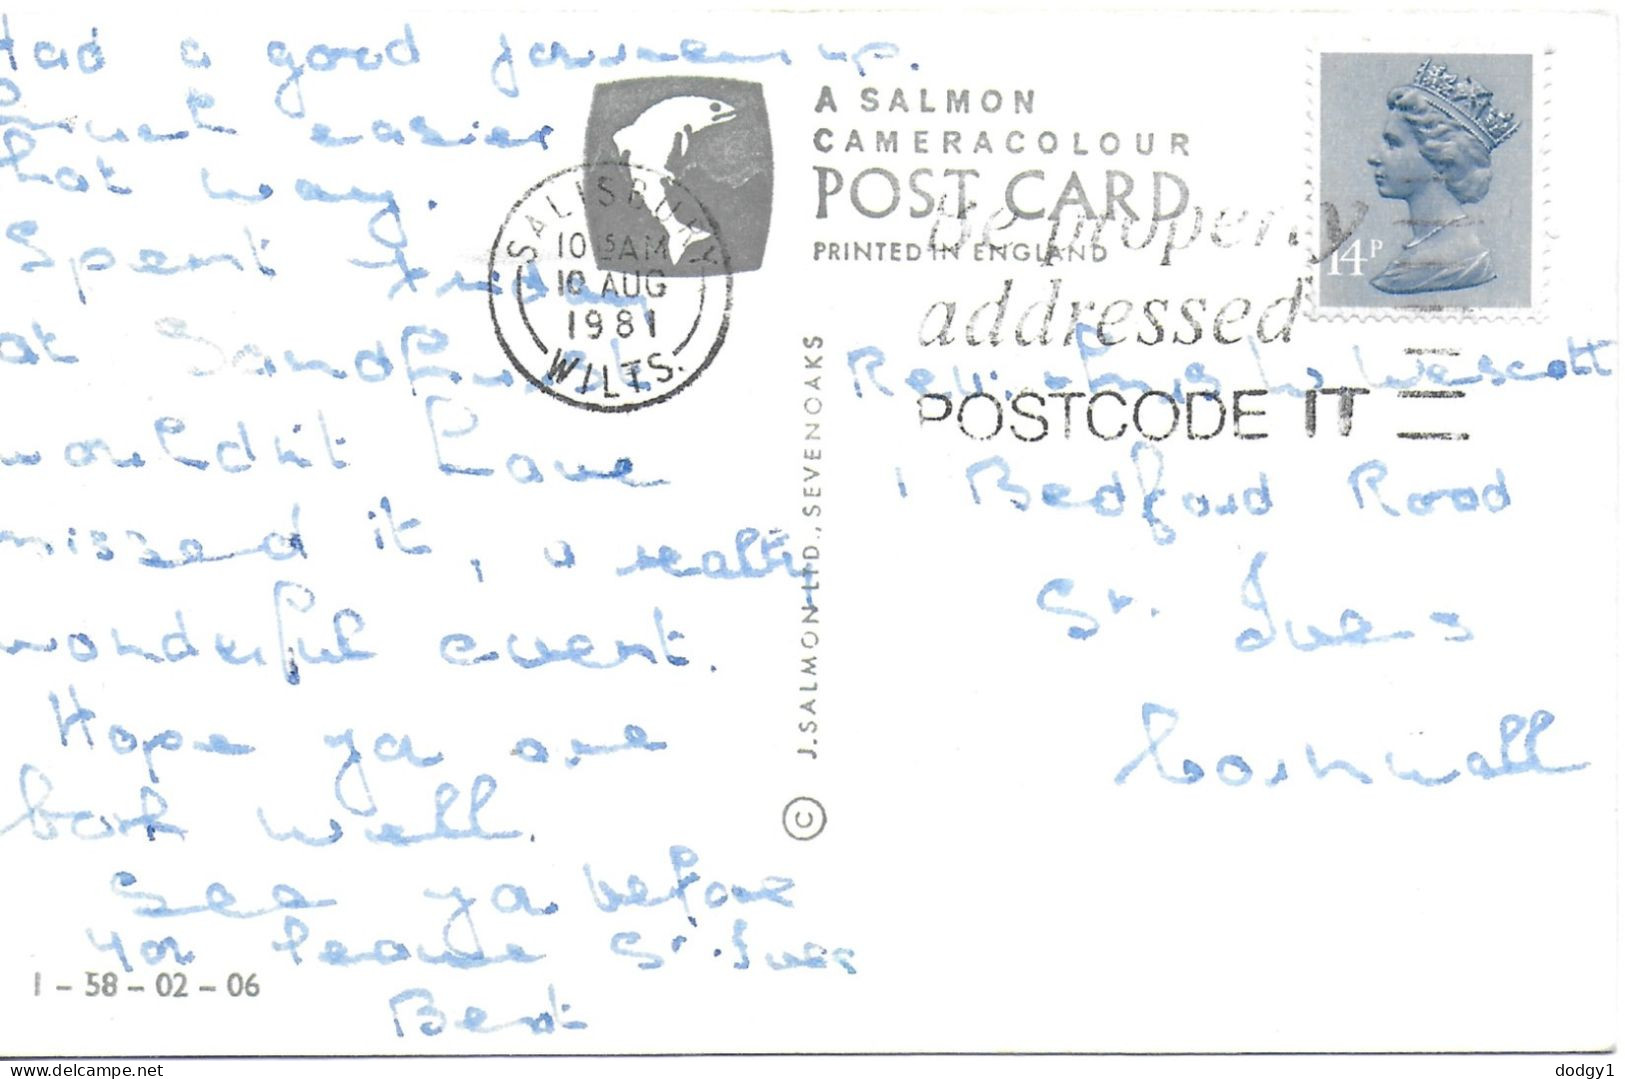 Had a good journey up.
much easier
that way.
Spent Friday
at Sandford
wouldn't have
missed it, a really
wonderful event.
Hope ya are
both well.
See ya before
you leave St. Ives
Best
1 – 58 – 02 – 06
A SALMON
CAMERACOLOUR
POST CARD
PRINTED IN ENGLAND
SALISBURY
10 15AM
10 AUG
1981
WILTS.
Be properly
addressed
POSTCODE IT
14P
© J. SALMON LTD., SEVENOAKS
Rev. Wescott
1 Bedford Road
St. Ives
Cornwall
delcampe.net
dodgy1